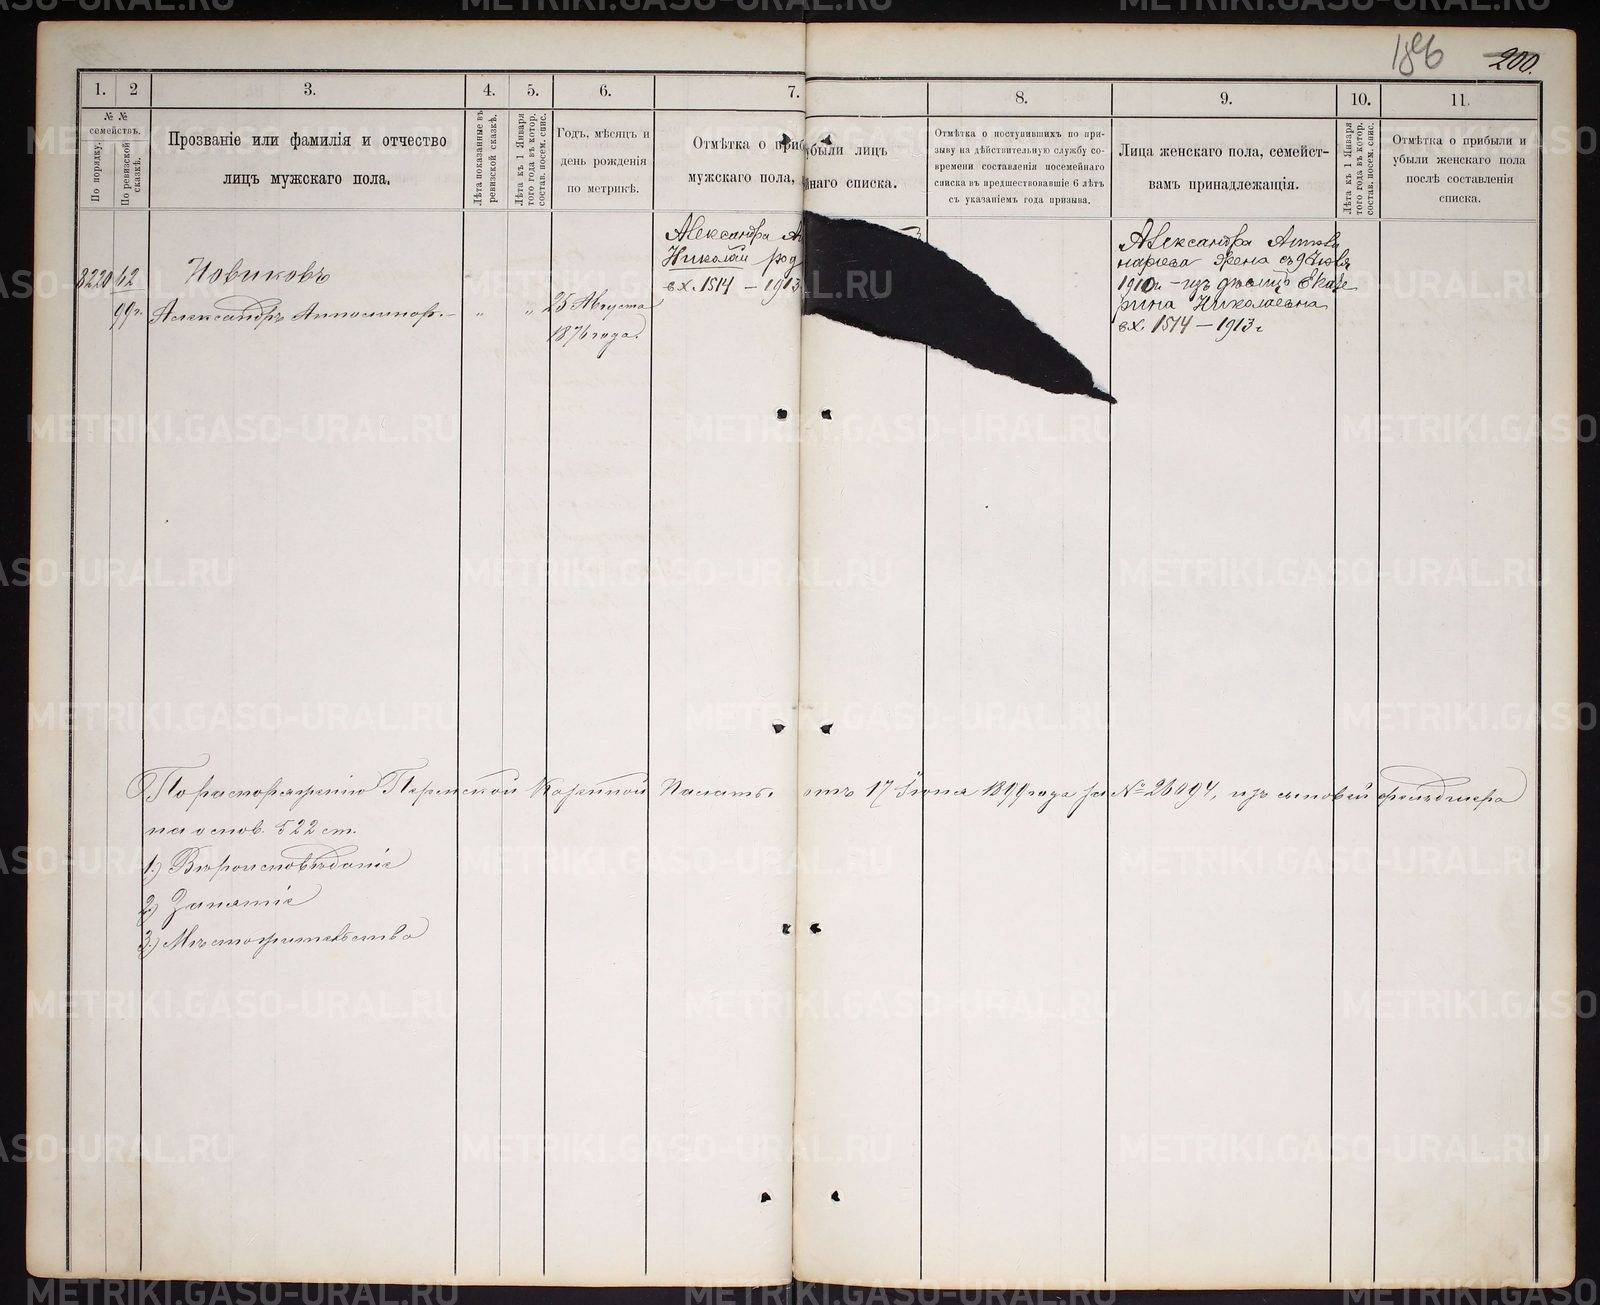 186 200.
1. 2 3. 4. 5. 6. 7. 8. 9. 10. 11.
№ №
семействъ.
По порядку.
По ревизской сказкѣ.
Прозваніе или фамилія и отчество
лицъ мужскаго пола.
Лѣта показанные въ
ревизской сказкѣ.
Лѣта къ 1 Января
того года въ котор.
состав. посем. спис.
Годъ, мѣсяцъ и
день рожденія
по метрикѣ.
Отмѣтка о приб
были лицъ
мужскаго пола,
йнаго списка.
Отмѣтка о поступившихъ по при-
зыву на дѣйствительную службу со-
времени составленія посемейнаго
списка въ предшествовавшіе 6 лѣтъ
съ указаніемъ года призыва.
Лица женскаго пола, семейст-
вамъ принадлежащія.
Лѣта къ 1 Января
того года въ котор.
состав. посем. спис.
Отмѣтка о прибыли и
убыли женскаго пола
послѣ составленія
списка.
8220 62 Новиковъ
99г. Александръ Апполинар. " " 25 Августа
1876 года.
Александра
Николай род
вх. 1514 – 1913
Александра Аппол
нарьева жена съ 9
1910г – изъ дѣвицъ Екате
рина Николаевна
вх. 1514 – 1913г
По распоряженію Пермской Казенной Палаты отъ 17 Іюня 1899 года за № 26094, изъ сыновей фельдшера
на основ. 522 ст.
1.) Вѣроисповѣданіе
2.) Занятіе
3.) Мѣстожительство
METRIKI.GASO-URAL.RU